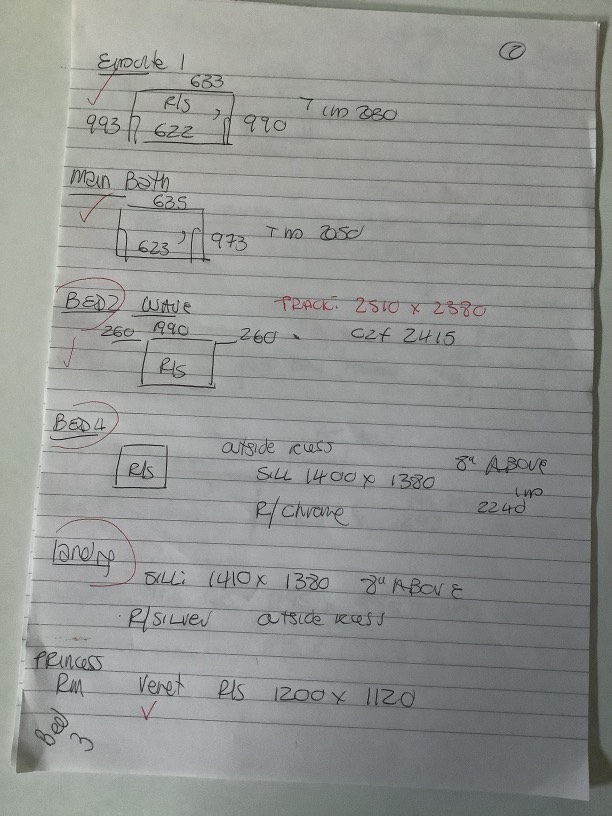 2
Ensuite 1
633
R/S
993 622 990 T 2080
Main Bath
635
623 973 T 2050
BED2 WAVE TRACK: 2510 x 2380
260 1990 260 C2f 2415
R/S
BED4
outside recess
R/S SILL 1400 x 1380 8" ABOVE
R/chrome 2240
Landing
SILL: 1410 x 1380 8" ABOVE
R/SILVER outside recess
PRINCESS
RM Venet R/S 1200 x 1120
Bed 3